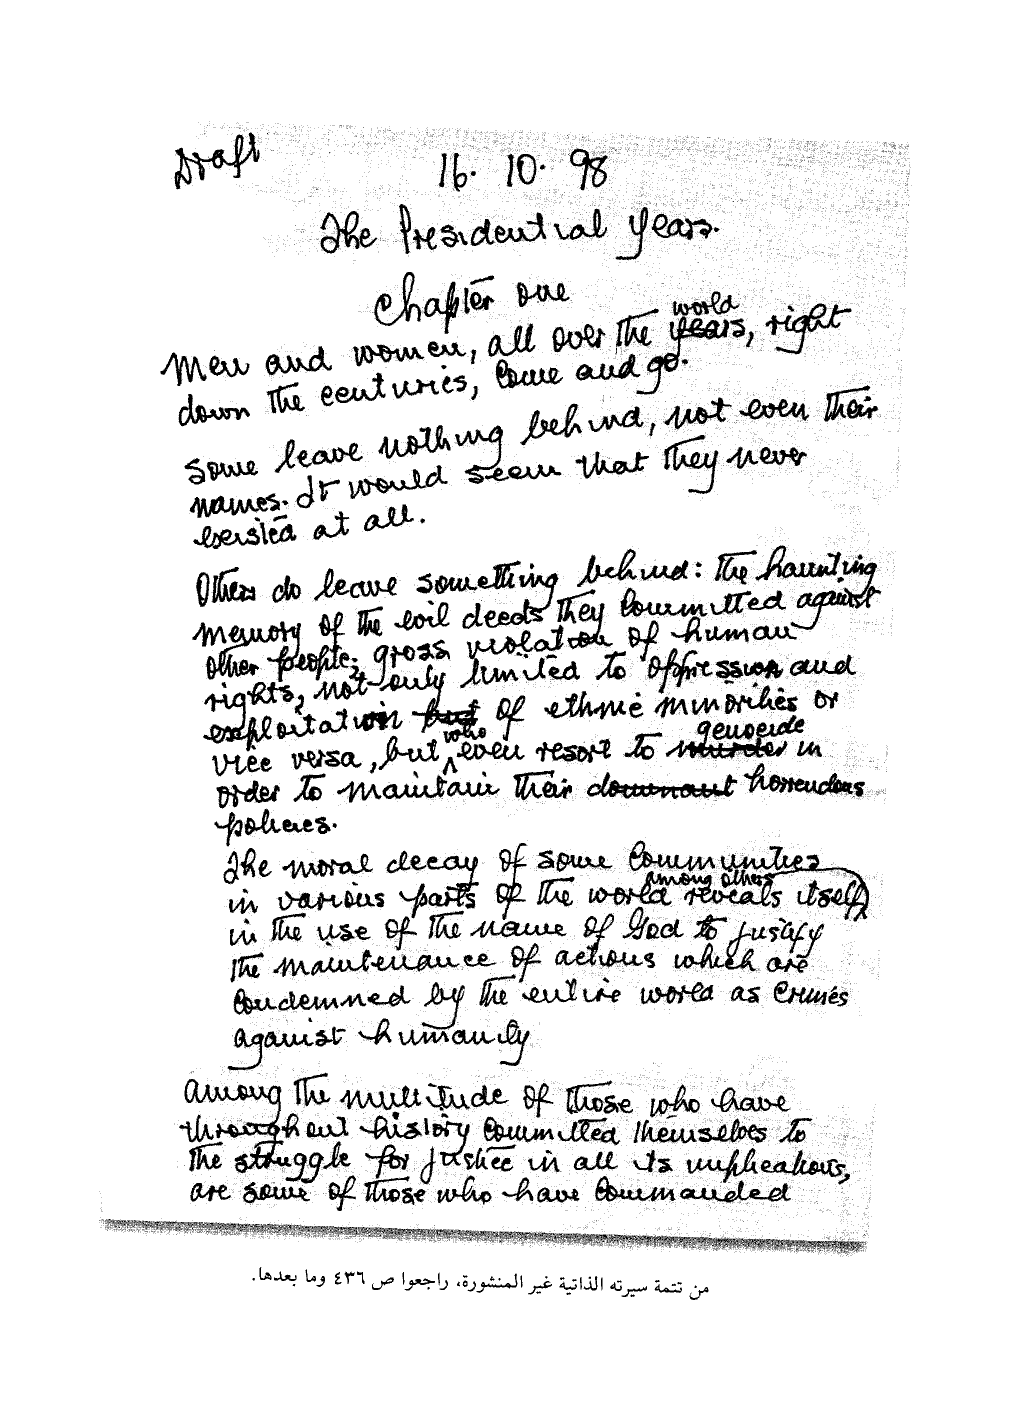 Draft
16. 10. 98
The Presidential Years.
Chapter one
world
Men and women, all over the years, right
down the centuries, come and go.
Some leave nothing behind, not even their
names. It would seem that they never
existed at all.
Others do leave something behind: the haunting
memory of the evil deeds they committed against
other people; gross violation of human
rights, not only limited to oppression and
exploitation but of ethnic minorities or
who genocide
vice versa, but even resort to murder in
order to maintain their dominant horrendous
policies.
The moral decay of some communities
among others
in various parts of the world reveals itself
in the use of the name of God to justify
the maintenance of actions which are
condemned by the entire world as crimes
against humanity
Among the multitude of those who have
throughout history committed themselves to
the struggle for justice in all its implications,
are some of those who have commanded
من تتمة سيرته الذاتية غير المنشورة، راجعوا ص ٤٣٦ وما بعدها.